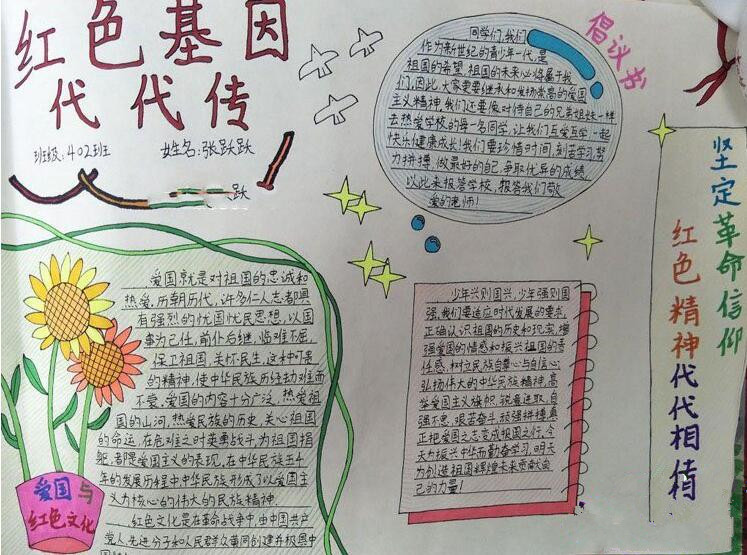 红色基因
代代传
班级:402班 姓名:张跃跃
跃
倡议书
同学们,我们
作为新世纪的青少年一代,是
祖国的希望,祖国的未来必将属于我
们,因此,大家更要继承和发扬崇高的爱国
主义精神,我们还要像对待自己的兄弟姐妹一样
去热爱学校的每一名同学,让我们互爱互学,一起
快乐健康成长!我们要珍惜时间,刻苦学习,努
力拼搏,做最好的自己,争取优异的成绩,
以此来报答学校,报答我们敬
爱的老师!
坚定革命信仰
红色精神代代相传
爱国就是对祖国的忠诚和
热爱,历朝历代,许多仁人志都具
有强烈的忧国忧民思想,以国
事为己任,前仆后继,临难不屈,
保卫祖国,关怀民生,这种可贵
的精神,使中华民族历经劫难而
不衰,爱国的内容十分广泛,热爱祖
国的山河,热爱民族的历史,关心祖国
的命运,在危难之时英勇战斗,为祖国捐
躯,都是爱国主义的表现,在中华民族五千
年的发展历程中,中华民族形成了以爱国主
义为核心的伟大的民族精神.
红色文化是在革命战争中,由中国共产
党人,先进分子和人民群众共同创建并极具中
爱国与
红色文化
少年兴则国兴,少年强则国
强,我们要适应时代发展的要求,
正确认识祖国的历史和现实,增
强爱国的情感和振兴祖国的责
任感,树立民族自尊心与自信心;
弘扬伟大的中华民族精神,高
举爱国主义旗帜,锐意进取,自
强不息,艰苦奋斗,顽强拼搏,真
正把爱国之志变成报国之行,今
天为振兴中华而勤奋学习,明天
为创造祖国辉煌未来贡献自
己的力量!